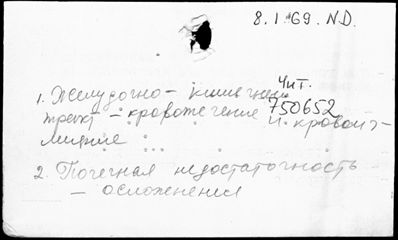 8.1.69. N.D.
Чит.
1. Желудочно - кишечный
750652
тракт - кровотечение и кровоиз-
лияние
2. Почечная недостаточность
- осложнения